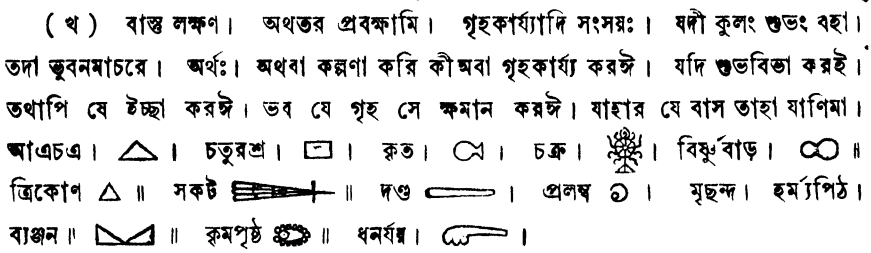 ( খ ) বাস্তু লক্ষণ। অথতর প্রবক্ষামি। গৃহকার্য্যাদি সংসয়ঃ। যদী কুলং শুভং বহা।
তদা ভুবনমাচরে। অর্থঃ। অথবা কল্পণা করি কীঅবা গৃহকার্য্য করঈ। যদি শুভবিভা করই।
তথাপি ষে ইচ্ছা করঈ। ভব যে গৃহ সে ক্ষমান করঈ। যাহার যে বাস তাহা যাণিমা।
আএচএ। । চতুরশ্র। । কৃত। । চক্র। । বির্ষ্ণুবাড়। ॥
ত্রিকোণ ॥ সকট ॥ দণ্ড । প্রলম্ব । মৃছন্দ। হর্ম্যপিঠ।
ব্যঞ্জন॥ ॥ কৃমপৃষ্ঠ ॥ ধনর্যন্ন। ।